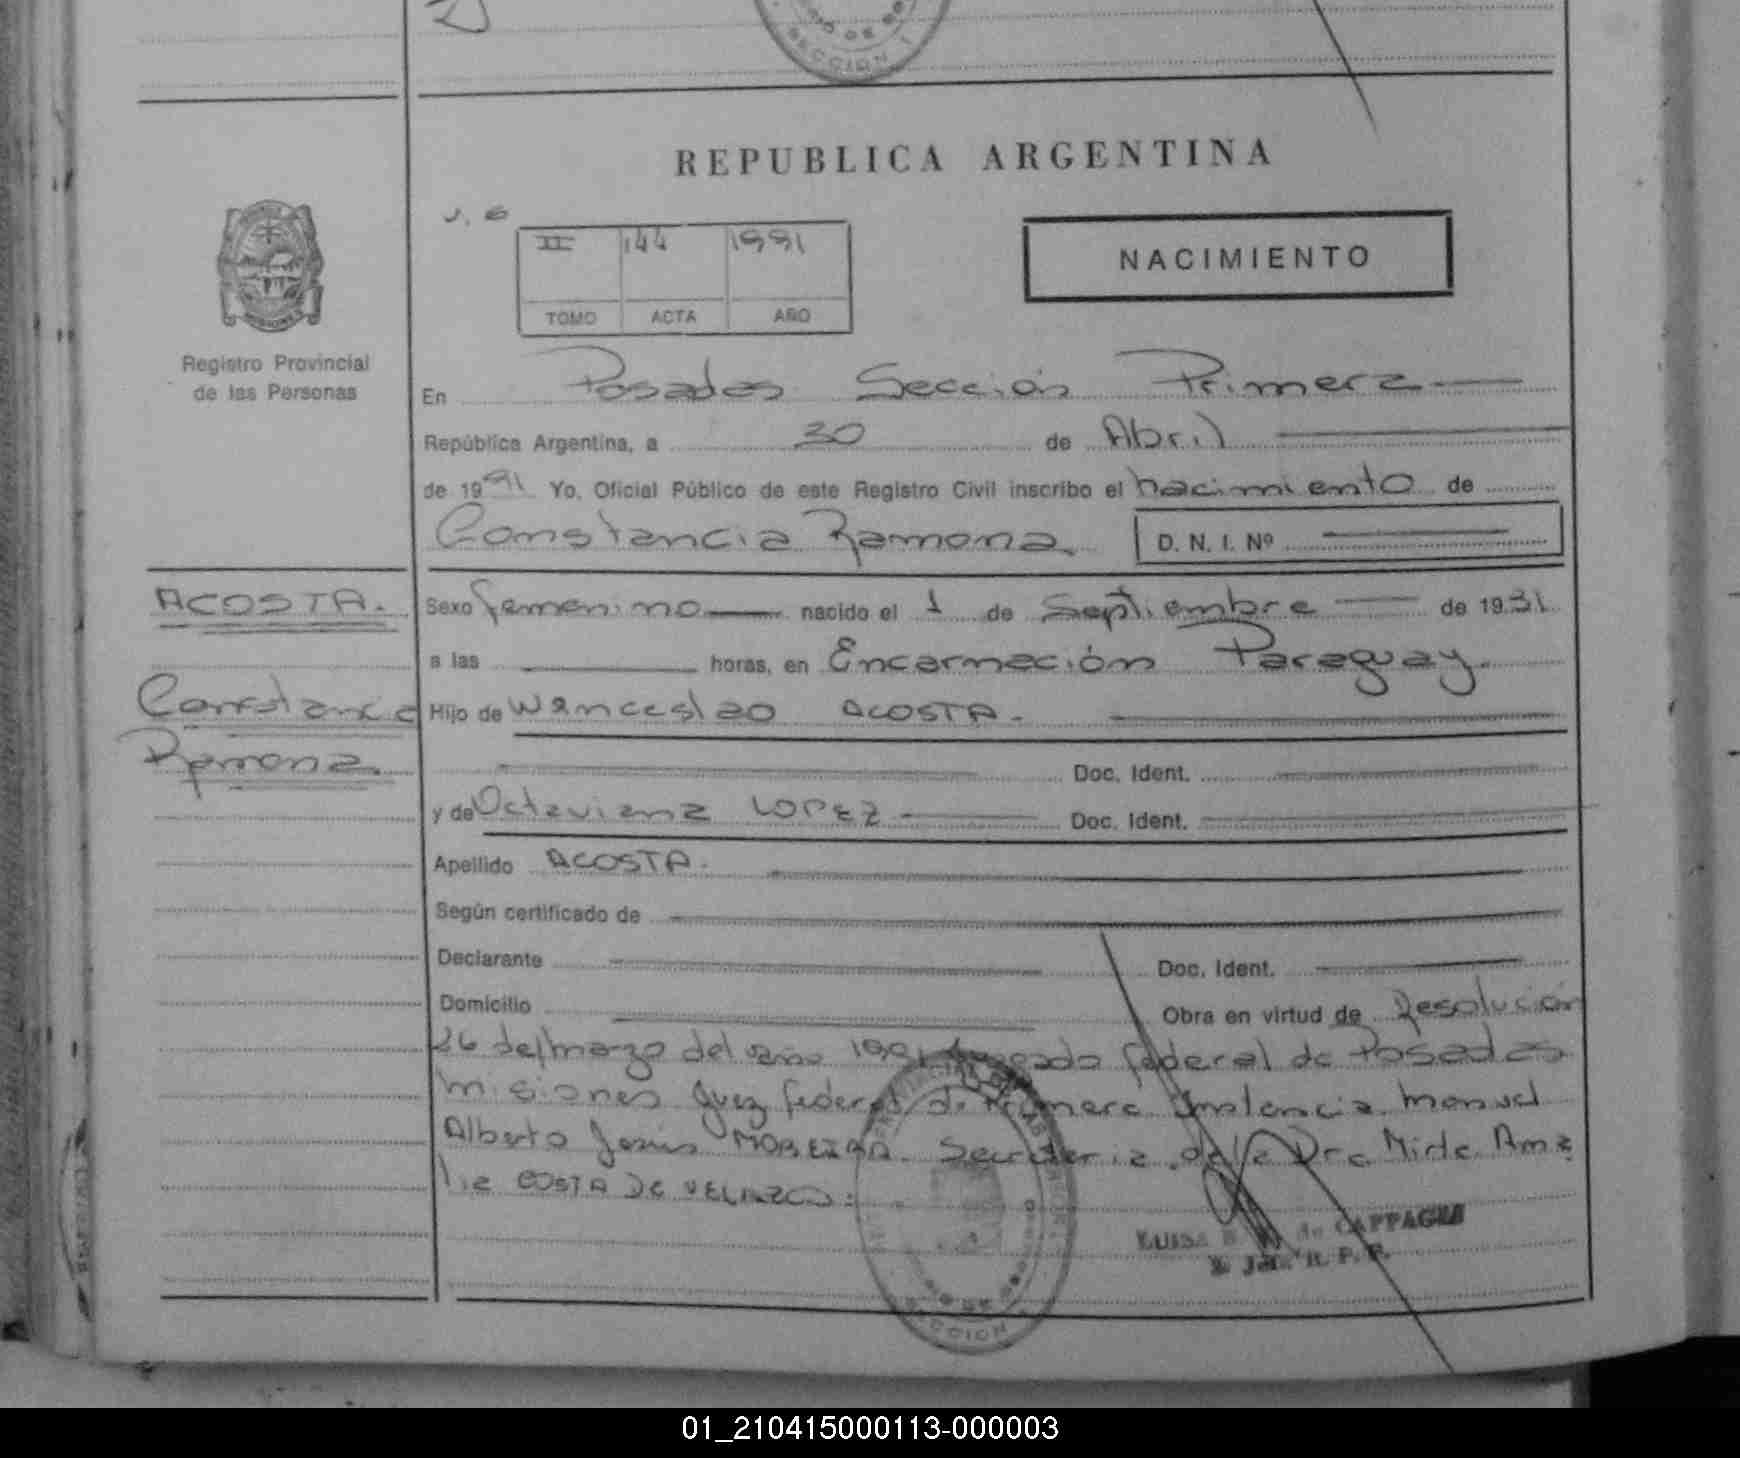 SECCION 1
REPUBLICA ARGENTINA
II 144 1991
TOMO ACTA AÑO
NACIMIENTO
MISIONES
Registro Provincial
de las Personas
En Posadas Sección Primera
República Argentina, a 30 de Abril
de 1991 Yo, Oficial Público de este Registro Civil inscribo el nacimiento de
Constancia Ramona D. N. I. Nº
ACOSTA.
Constancia
Ramona
Sexo femenino nacido el 1 de Septiembre de 1931
a las horas, en Encarnación Paraguay.
Hijo de Wenceslao ACOSTA.
Doc. Ident.
y de Octaviana LOPEZ Doc. Ident.
Apellido ACOSTA.
Según certificado de
Declarante Doc. Ident.
Domicilio Obra en virtud de Resolución
26 de marzo del año 1991 Juzgado federal de Posadas
Misiones Juez federal de Primera Instancia Manuel
Alberto Jesús MOREIRA. Secretaria de la Dra. Mirta Ama
lia COSTA DE
SECCION
LUISA de CAPPAGLI
R. P. P.
01_210415000113-000003